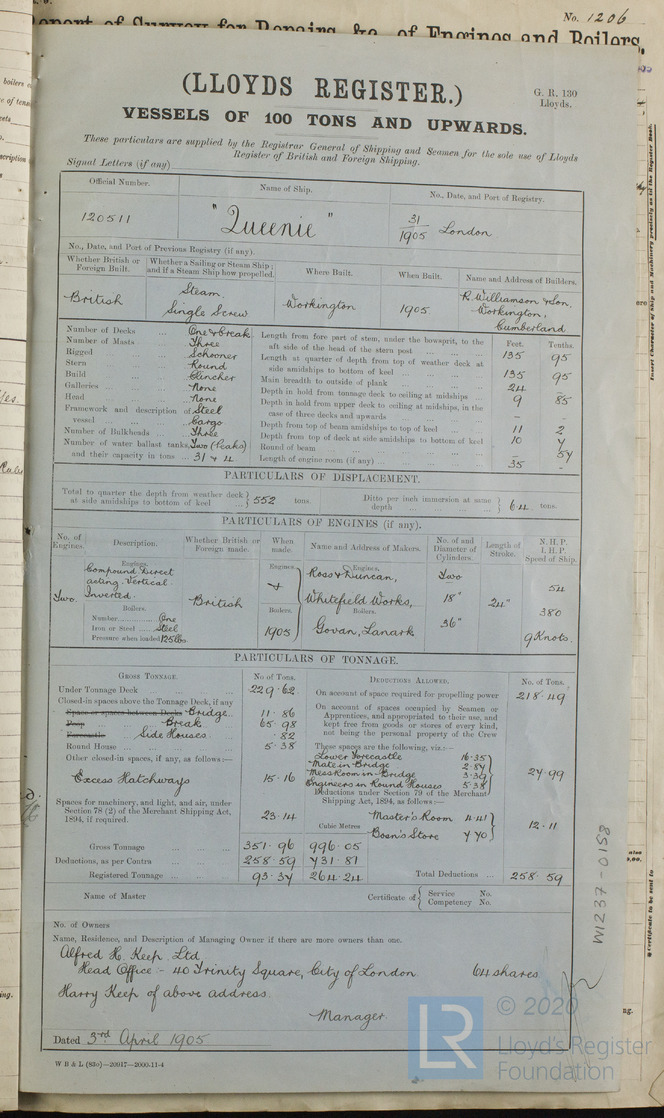 No. 1206
Report of Survey for Repairs, &c., of Engines and Boilers.
(LLOYDS REGISTER.)
G. R. 130
Lloyds.
VESSELS OF 100 TONS AND UPWARDS.
These particulars are supplied by the Registrar General of Shipping and Seamen for the sole use of Lloyds
Register of British and Foreign Shipping.
Signal Letters (if any)
Official Number. Name of Ship. No., Date, and Port of Registry.
120511 "Queenie" 31/1905 London
No., Date, and Port of Previous Registry (if any).
Whether British or Foreign Built. Whether a Sailing or Steam Ship; and if a Steam Ship how propelled. Where Built. When Built. Name and Address of Builders.
British Steam Single Screw Workington 1905. R. Williamson & Son, Workington, Cumberland
Number of Decks ... One & break
Number of Masts ... Three
Rigged ... Schooner
Stern ... Round
Build ... Clincher
Galleries ... None
Head ... None
Framework and description of vessel ... Steel Cargo
Number of Bulkheads ... Three
Number of water ballast tanks Two (Peaks)
and their capacity in tons ... 31 & 4
Feet. Tenths.
Length from fore part of stem, under the bowsprit, to the aft side of the head of the stern post ... 135 95
Length at quarter of depth from top of weather deck at side amidships to bottom of keel ... 135 95
Main breadth to outside of plank ... 24
Depth in hold from tonnage deck to ceiling at midships ... 9 85
Depth in hold from upper deck to ceiling at midships, in the case of three decks and upwards ... -
Depth from top of beam amidships to top of keel ... 11 2
Depth from top of deck at side amidships to bottom of keel 10 7
Round of beam ... - 57
Length of engine room (if any) ... 35 -
PARTICULARS OF DISPLACEMENT.
Total to quarter the depth from weather deck at side amidships to bottom of keel ... 552 tons. Ditto per inch immersion at same depth ... 6.4 tons.
PARTICULARS OF ENGINES (if any).
No. of Engines. Description. Whether British or Foreign made. When made. Name and Address of Makers. No. of and Diameter of Cylinders. Length of Stroke. N.H.P. I.H.P. Speed of Ship.
Engines. Engines. Engines.
Compound Direct Ross & Duncan, Two 54
acting. Vertical
Two. Inverted. British Whitefield Works, 18" 24" 380
Boilers. Boilers. Boilers.
Number ... One 36"
Iron or Steel ... Steel 1905 Govan, Lanark 9 Knots.
Pressure when loaded 125 lbs.
PARTICULARS OF TONNAGE.
GROSS TONNAGE. No. of Tons.
Under Tonnage Deck ... 229.62
Closed-in spaces above the Tonnage Deck, if any
Space or spaces between Decks Bridge .. 11.86
Poop ... Break 65.98
Forecastle ... Side Houses ... .82
Round House ... 5.38
Other closed-in spaces, if any, as follows:—
Excess Hatchways 15.16
Spaces for machinery, and light, and air, under Section 78 (2) of the Merchant Shipping Act, 1894, if required. 23.14
Cubic Metres
Gross Tonnage ... 351.96 996.05
Deductions, as per Contra ... 258.59 731.81
Registered Tonnage ... 93.37 264.24
DEDUCTIONS ALLOWED. No. of Tons.
On account of space required for propelling power 218.49
On account of spaces occupied by Seamen or Apprentices, and appropriated to their use, and kept free from goods or stores of every kind, not being the personal property of the Crew
These spaces are the following, viz.:—
Lower Forecastle 16.35
Mate in Bridge 2.87
Mess Room in Bridge 3.39
Engineers in Round Houses 5.38
27.99
Deductions under Section 79 of the Merchant Shipping Act, 1894, as follows:—
Master's Room 4.41
Bosn's Store 7.70
12.11
Total Deductions ... 258.59
Name of Master Certificate of Service No. Competency No.
No. of Owners
Name, Residence, and Description of Managing Owner if there are more owners than one.
Alfred H. Keep, Ltd
Head Office - 40 Trinity Square, City of London 64 shares
Harry Keep of above address.
Manager
Dated 3rd April 1905
W B & L (83o)—20017—2000-11-4
W1237-0158
LR © 2020
Lloyd's Register
Foundation